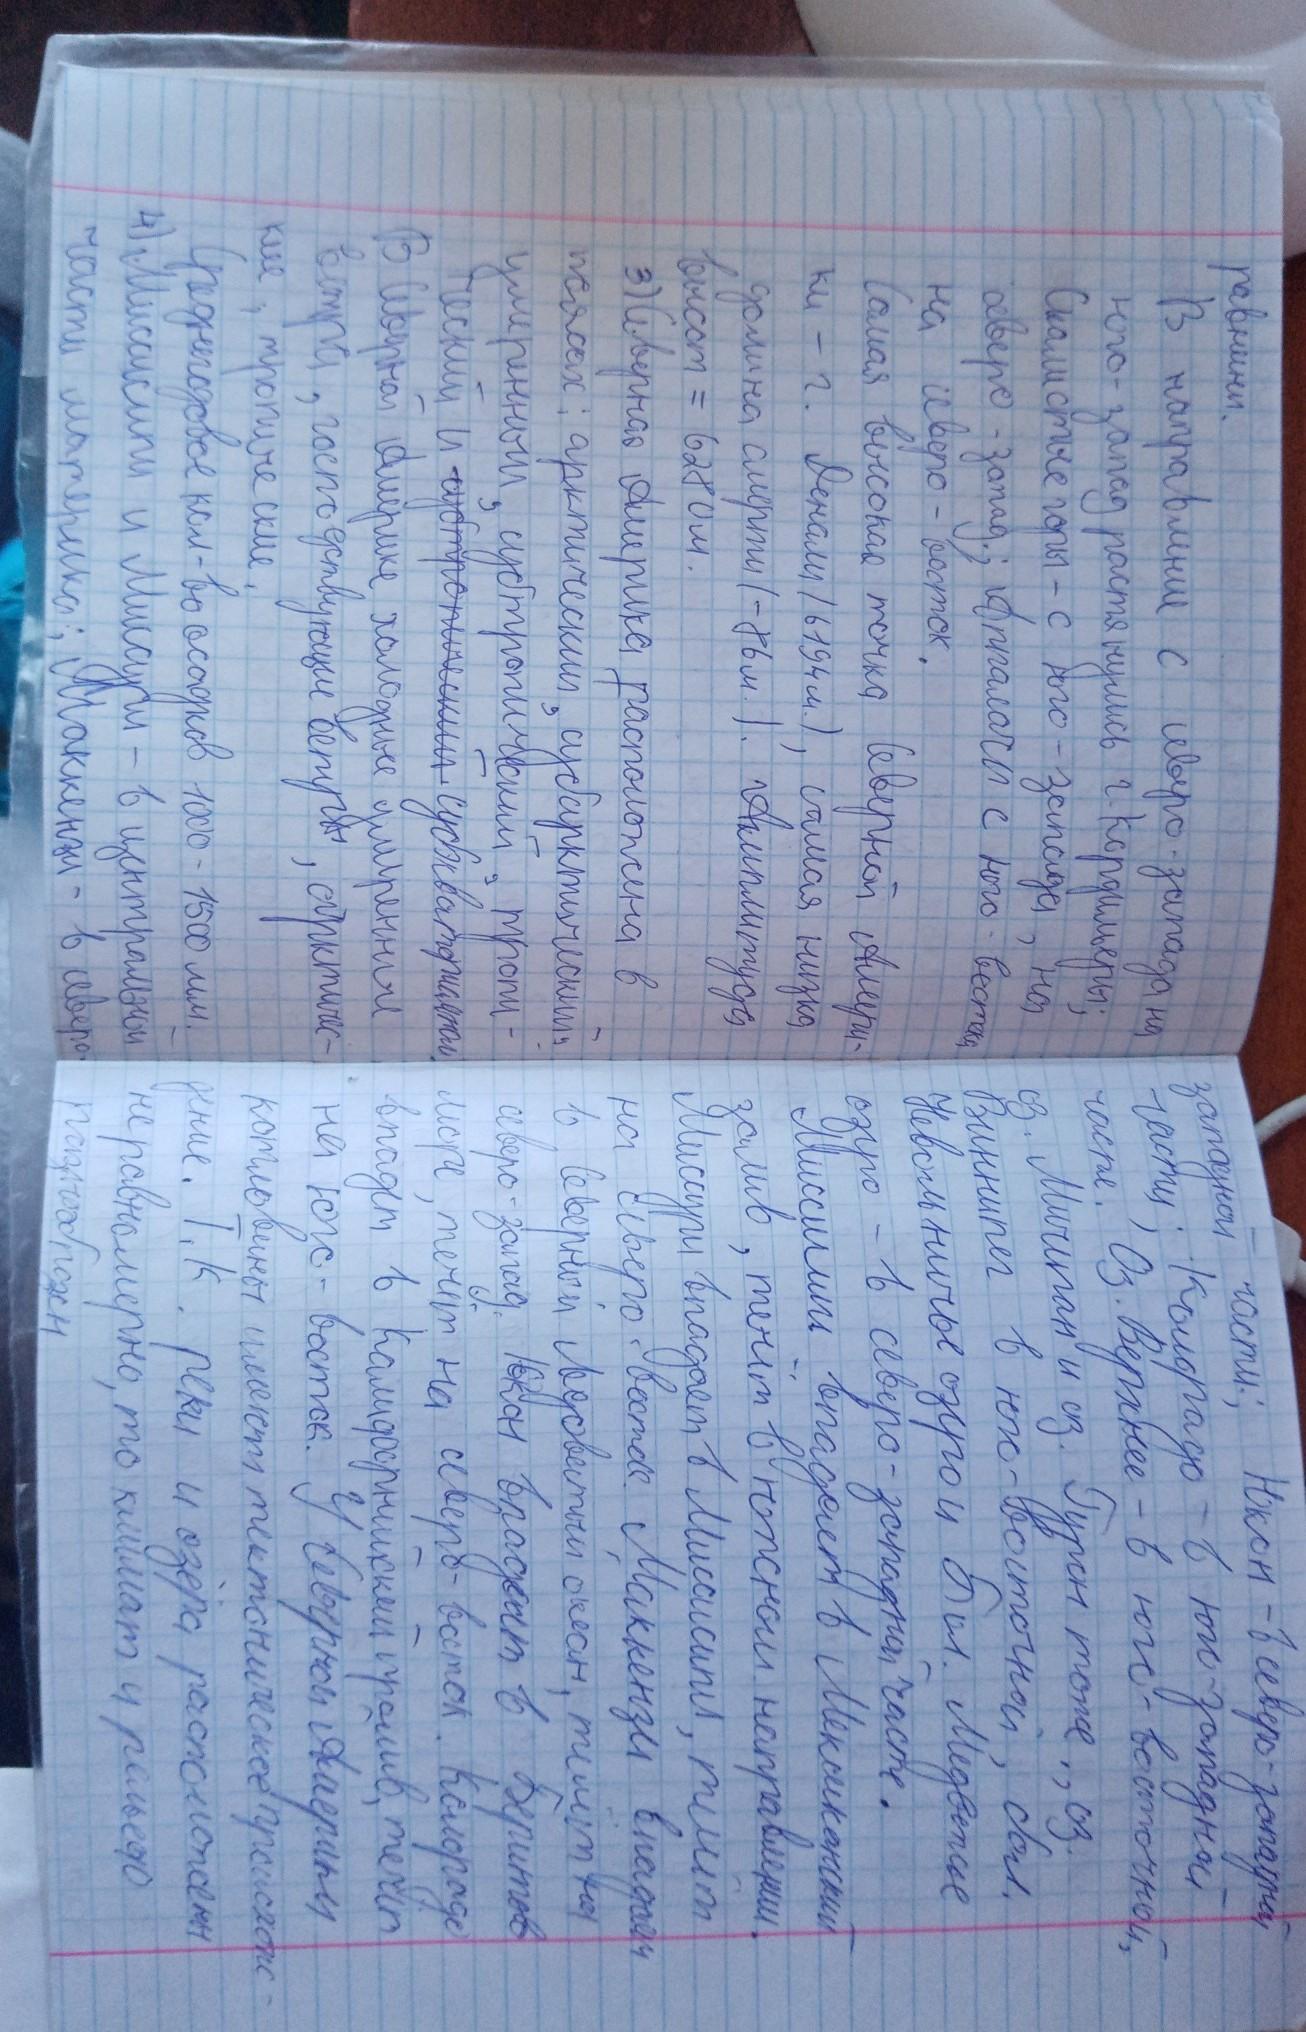 равнины.
В направление с северо-запада на
юго-запад растянулись г. Кордильеры;
Скалистые горы - с юго-запада, на
северо-запад; Аппалачи с юго-востока
на северо-восток.
Самая высокая точка Северной Амери-
ки - г. Денали (6194м.), самая низкая
долина смерти (-86м.). Амплитуда
высот = 6280м.
3) Северная Америка расположена в
поясах: арктический, субарктический;
умеренный, субтропический, тропи-
ческий и
В Северной Америке холодные умеренные
ветра, господствующие ветры, арктичес-
кие, тропические,
Среднегодовое кол-во осадков 1000-1500мм.
4) Миссисипи и Миссури - в центральной
части материка; Маккензи - в северо-
западной части; Юкон - в северо-западной
части; Колорадо - в юго-западной
части, Оз. Верхнее - в юго-восточной,
часте.
оз. Мичиган и оз. Гурон тоже, оз.
Виннипег в юго-восточной,
Невольничье озеро и бол. Медвежье
озеро - в северо-западной часте.
Миссисипи впадает в Мексиканский
залив, течёт в южном направлении.
Миссури впадает в Миссисипи, течёт
на северо-восток. Маккензи впадает
в Северный Ледовитый океан, течёт на
северо-запад. Юкон впадает в Берингово
море, течёт на северо-восток. Колорадо
впадает в Калифорнийский пролив, течёт
на юго-восток. У Северной Америки
котловины имеют тектоническое происхож-
дение. Т.к. реки и озёра расположены
неравномерно, то климат и рельеф
разнообразен